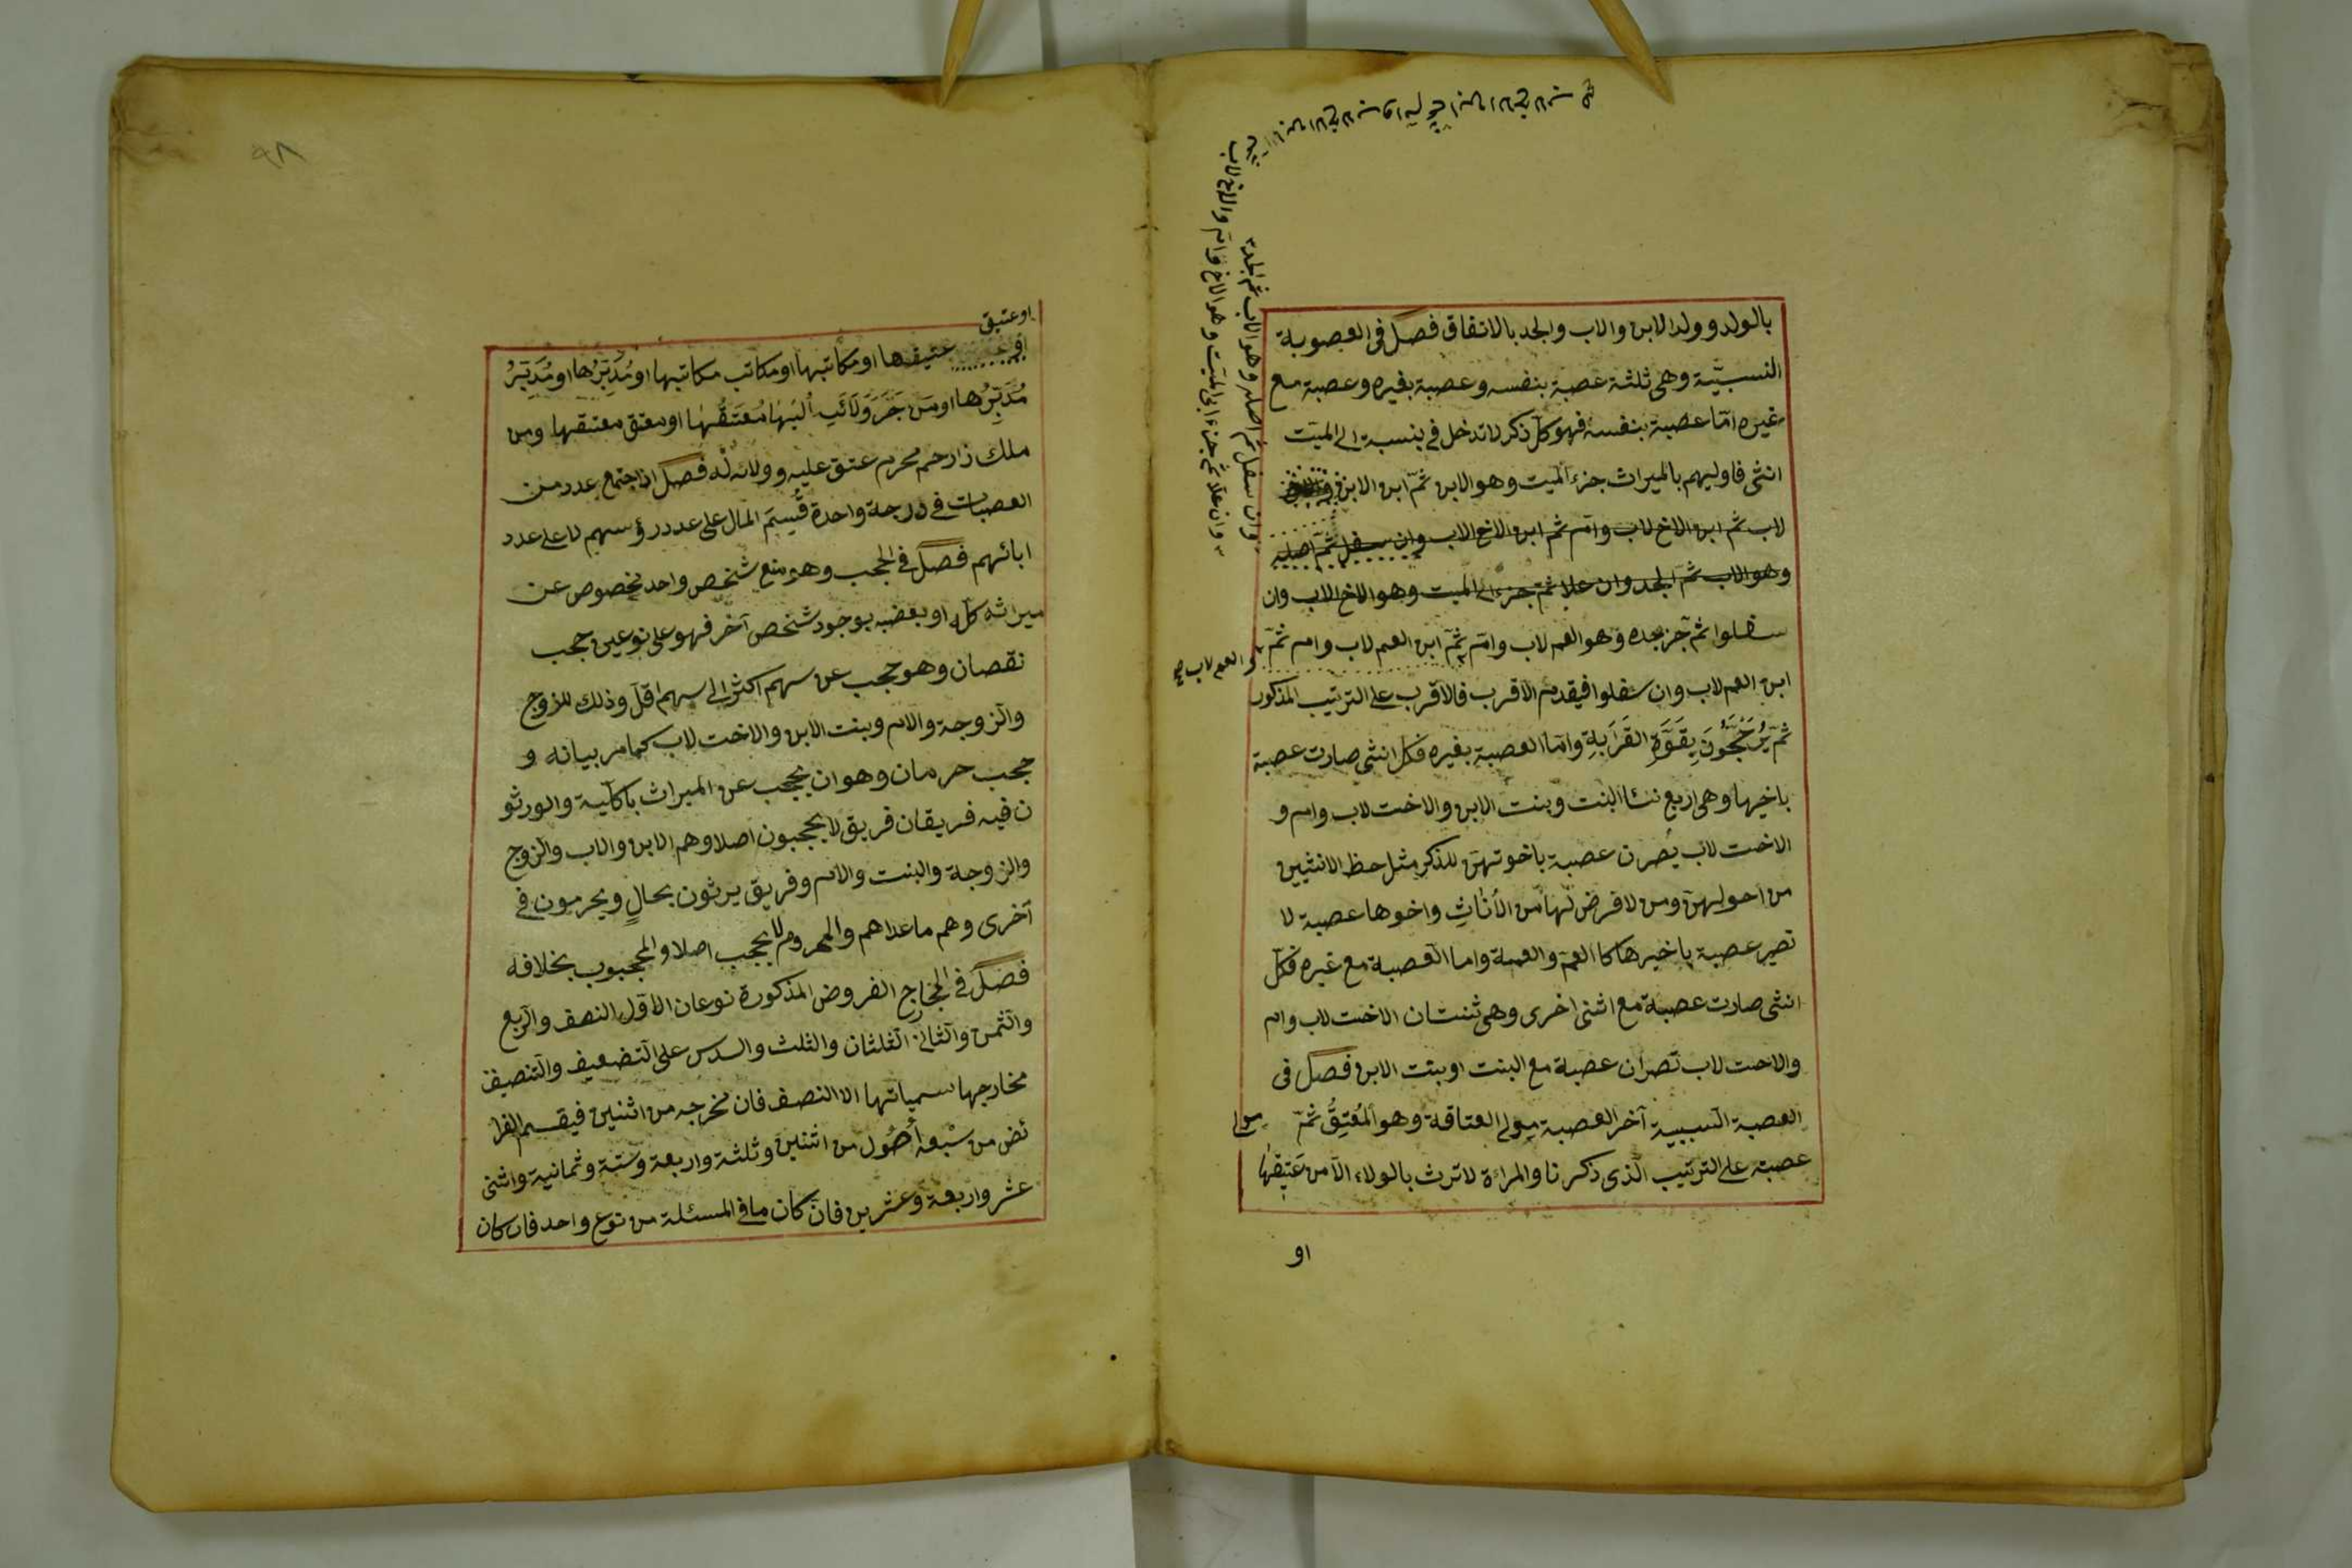 بالولد وولد الابن والاب والجد بالاتفاق فصل فى العصوبة
النسبيّة وهى ثلثة عصبة بنفسه وعصبة بغيره وعصبة مع
غيره امّا عصبة بنفسه فهو كلّ ذكر لا تدخل فى بنسبة الى الميّت
انثى فاوليهم بالميراث جزء الميت وهو الابن ثمّ ابن الابن
لاب ثم ابن الاخ لاب وامّ ثم ابن الاخ الاب وان سفل ثمّ اصله
وهو الاب ثمّ الجد وان علا ثمّ جزء الى الميت وهو الاخ الاب وان
سفلوا ثم جزء جده وهو العم لاب وامّ ثمّ ابن العم لاب وام ثمّ
والعم لاب صح
ابن العم لاب وان سفلوا فيقدم الاقرب فالاقرب على الترتيب المذكور
ثمّ يُرَجَّحُونَ بِقَوَّةِ القَرَابةِ وامّا العصبة بغيره فكل انثى صارت عصبة
باخيها وهى اربع نسا البنت وبنت الابن والاخت لاب وام و
الاخت لاب يُصرن عصبة باخوتهنّ للذكر مثل حظ الانثيين
من احولهنّ ومن لا فرض لها من الأُنَاثِ واخوها عصبة لا
تصير عصبة باخيرها كا العمّ والعمة واما العصبة مع غيره فكلّ
انثى صارت عصبة مع انثى اخرى وهى ثنتان الاخت لاب وام
والاخت لاب تصران عصبة مع البنت او بنت الابن فصل فى
العصبة السببية آخر العصبة مولى العتاقة وهو المُعْتِقُ ثمّ
مولى
عصبته على الترتيب الّذى ذكرنا والمراة لا ترث بالولاء الّا من عَتِيقهَا
او
وان سفل ثم اصله وهو الاب ثم الجد
وان علا ثم جزء ابى الميت وهو الاخ لاب وام والاخ لاب
او عتيق
عتيقها او مكاتبها او مكاتب مكاتبها او مُدَبَّرُها او مُدَبَّرُ
مُدَبَّرُها او من جَرَّ وَلَائَهِ اليها مُعتَقُها او معتق معتقها ومن
ملك ذا رحم محرم عتق عليه وولائه له فصل اذا اجتمع عدد من
العصبات فى درجة واحدة قُسِمَ المال على عدد رؤسهم لا على عدد
ابائهم فصل فى الحجب وهو منع شخص واحد مخصوص عن
ميراثه كلّه او بعضه بوجود شخص آخر فهو على نوعين حجب
نقصان وهو حجب عن سهم اكثر الى سهم اقلّ وذلك للزوج
والزوجة والام وبنت الابن والاخت لاب كما مر بيانه و
حجب حرمان وهو ان يحجب عن الميراث باكلّية والورثو
ن فيه فريقان فريق لا يحجبون اصلا وهم الابن والاب والزوج
والزوجة والبنت والام وفريق يرثون بحالٍ ويحرمون فى
آخرى وهم ما عداهم والمحروم لا يحجب اصلا والمحجبوب بخلافه
فصل فى المخارج الفروض المذكورة نوعان الاوّل النصف والربع
والثمن والثانى الثلثان والثلث والسدس على التضعيف والتنصيف
مخارجها سمياتها الا النصف فان مخرجه من اثنين فيقسم الفرا
ئض من سبْعة أُصُول من اثنين وثلثة واربعة وستّة وثمانية واثنى
عشر واربعة وعشرين فان كان ما فى المسئلة من نوع واحد فان كان